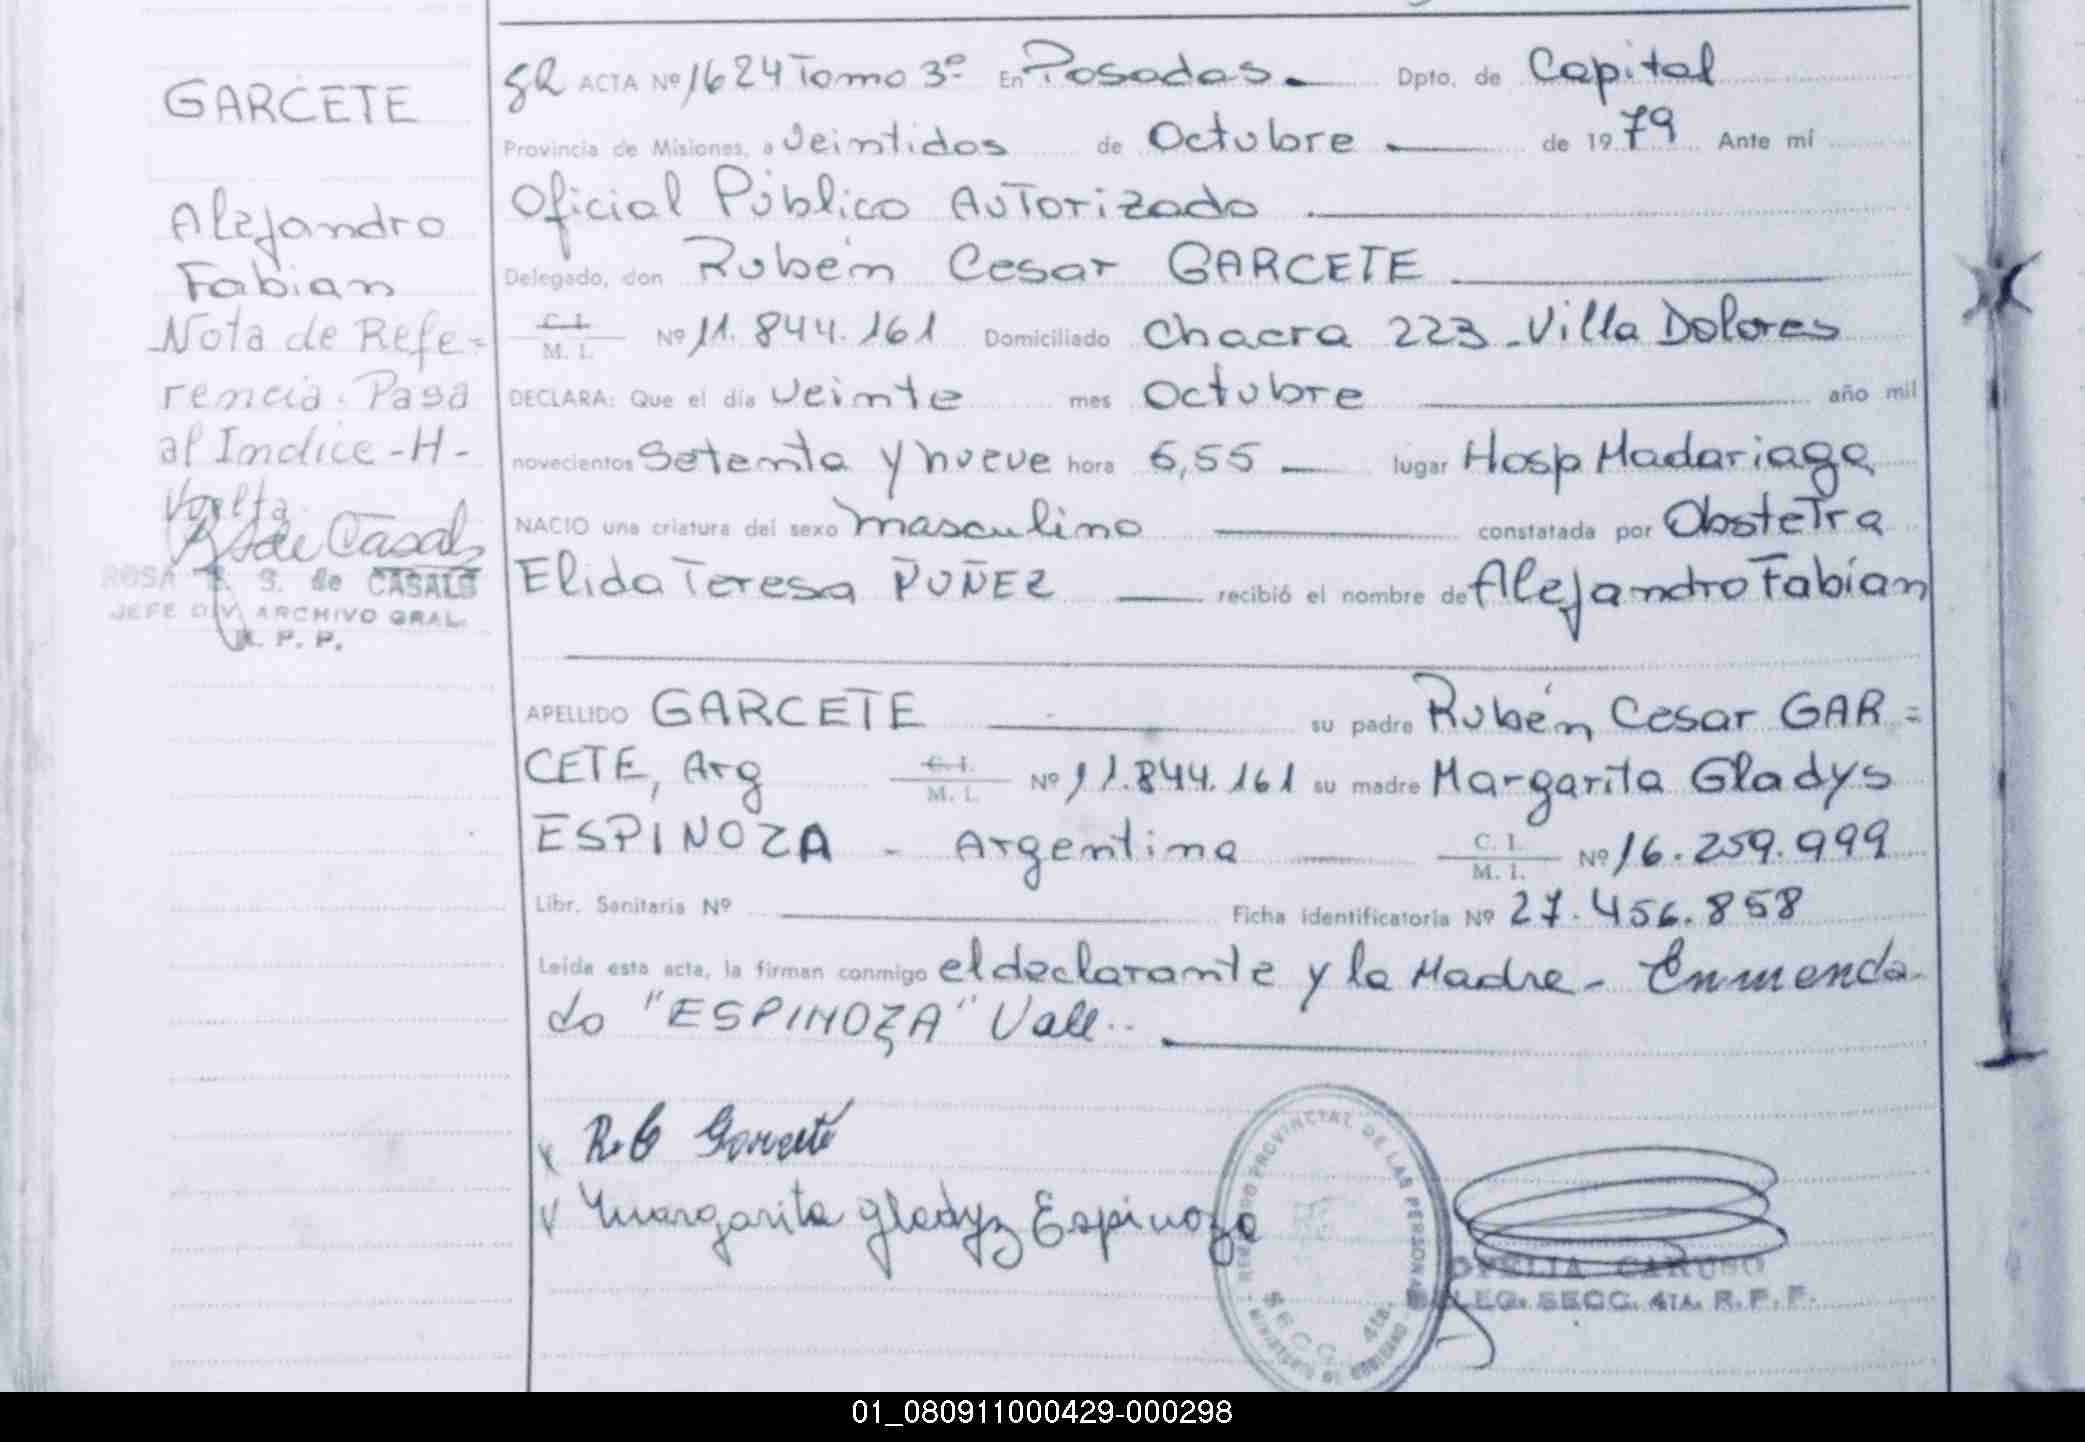 GARCETE
Alejandro
Fabian
Nota de Refe=
rencia. Pasa
al Indice -H-
Vuelta.
ROSA E. S. de CASALS
JEFE DIV. ARCHIVO GRAL.
R. P. P.
ACTA Nº 1624 Tomo 3º En Posadas. Dpto. de Capital
Provincia de Misiones, a Veintidos de Octubre de 1979 Ante mí
Oficial Público Autorizado
Delegado, don Rubén Cesar GARCETE
C. I.
M. I. Nº 11.844.161 Domiciliado Chacra 223 - Villa Dolores
DECLARA: Que el día Veinte mes Octubre año mil
novecientos Setenta y nueve hora 6,55 lugar Hosp Madariaga
NACIO una criatura del sexo masculino constatada por Obstetra
Elida Teresa ÑUÑEZ recibió el nombre de Alejandro Fabian
APELLIDO GARCETE su padre Rubén Cesar GAR=
CETE, Arg C. I. M. I. Nº 11.844.161 su madre Margarita Gladys
ESPINOZA - Argentina C. I. M. I. Nº 16.259.999
Libr. Sanitaria Nº Ficha identificatoria Nº 27.456.858
Leída esta acta, la firman conmigo el declarante y la Madre - Enmenda-
do "ESPINOZA" Vale..
R. C Garcete
Margarita gladyz Espinoza
REGISTRO PROVINCIAL DE LAS PERSONAS
MINISTERIO DE GOBIERNO
SECC. 4ta.
OFELIA CARUSO
DELEG. SECC. 4TA. R.P.P.
01_080911000429-000298